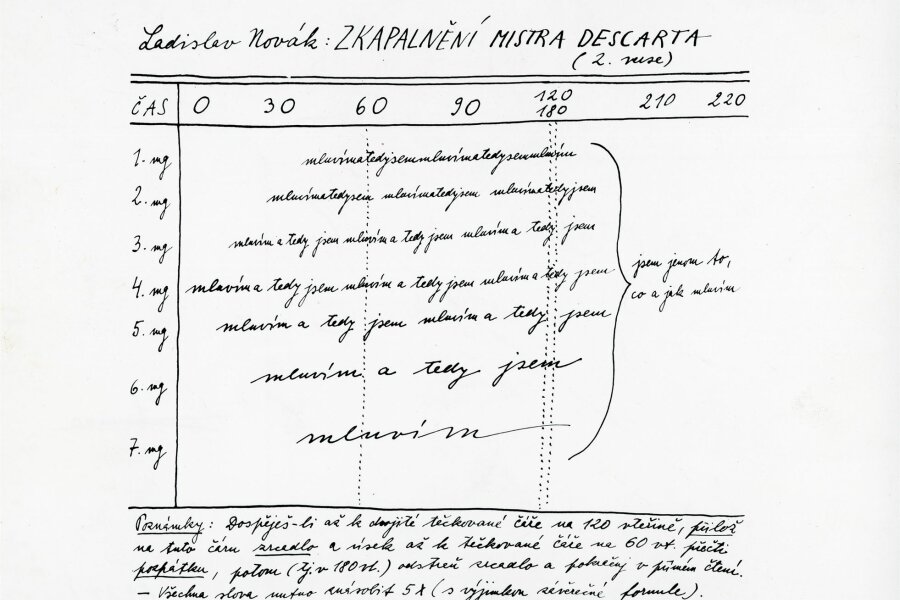 Ladislav Novák: ZKAPALNĚNÍ MISTRA DESCARTA
(2. verse)
ČAS 0 30 60 90 120 180 210 220
1. mg mluvímatedyjsemmluvímatedyjsemmluvím
2. mg mluvímatedyjsem mluvímatedyjsem mluvímatedyjsem
3. mg mluvím a tedy jsem mluvím a tedy jsem mluvím a tedy jsem
4. mg mluvím a tedy jsem mluvím a tedy jsem mluvím a tedy jsem
jsem jenom to,
co a jak mluvím
5. mg mluvím a tedy jsem mluvím a tedy jsem
6. mg mluvím a tedy jsem
7. mg mluvím
Poznámky: Dospěješ-li až k dvojité tečkované čáře na 120 vteřině, přilož
na tuto čáru zrcadlo a úsek až k tečkované čáře na 60 vt. přečti
pozpátku, potom (tj. v 180 vt.) odstraň zrcadlo a pokračuj v přímém čtení.
— Všechna slova nutno znásobit 5x (s výjimkou závěrečné formule).